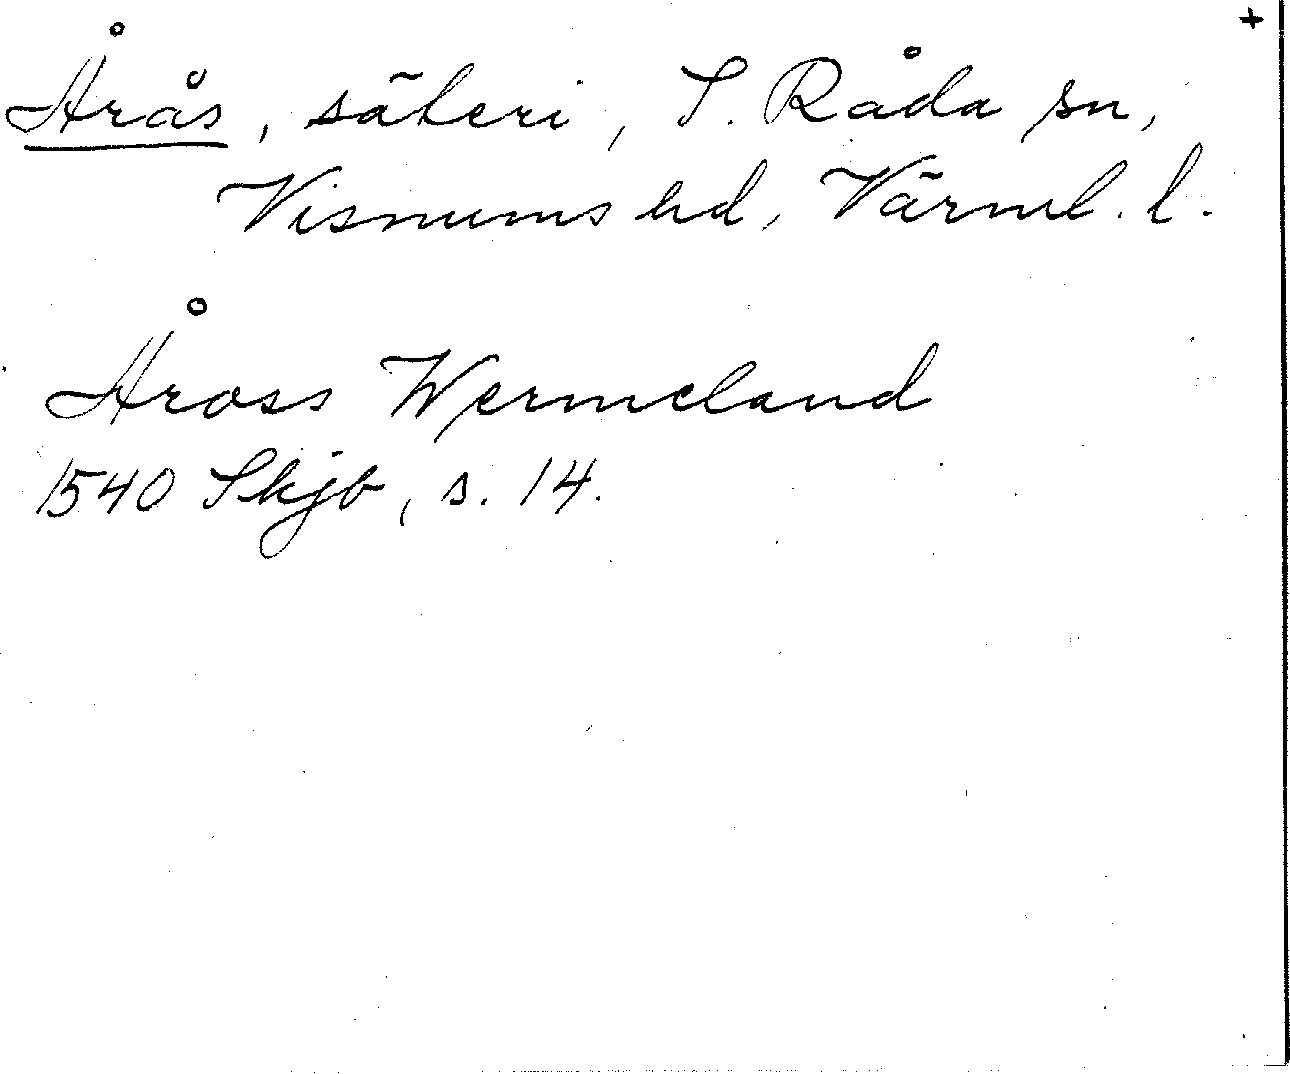 +
Årås, säteri, S. Råda sn,
Visnums hd, Värml. l.
Åross Wermeland
1540 Skjb, s. 14.